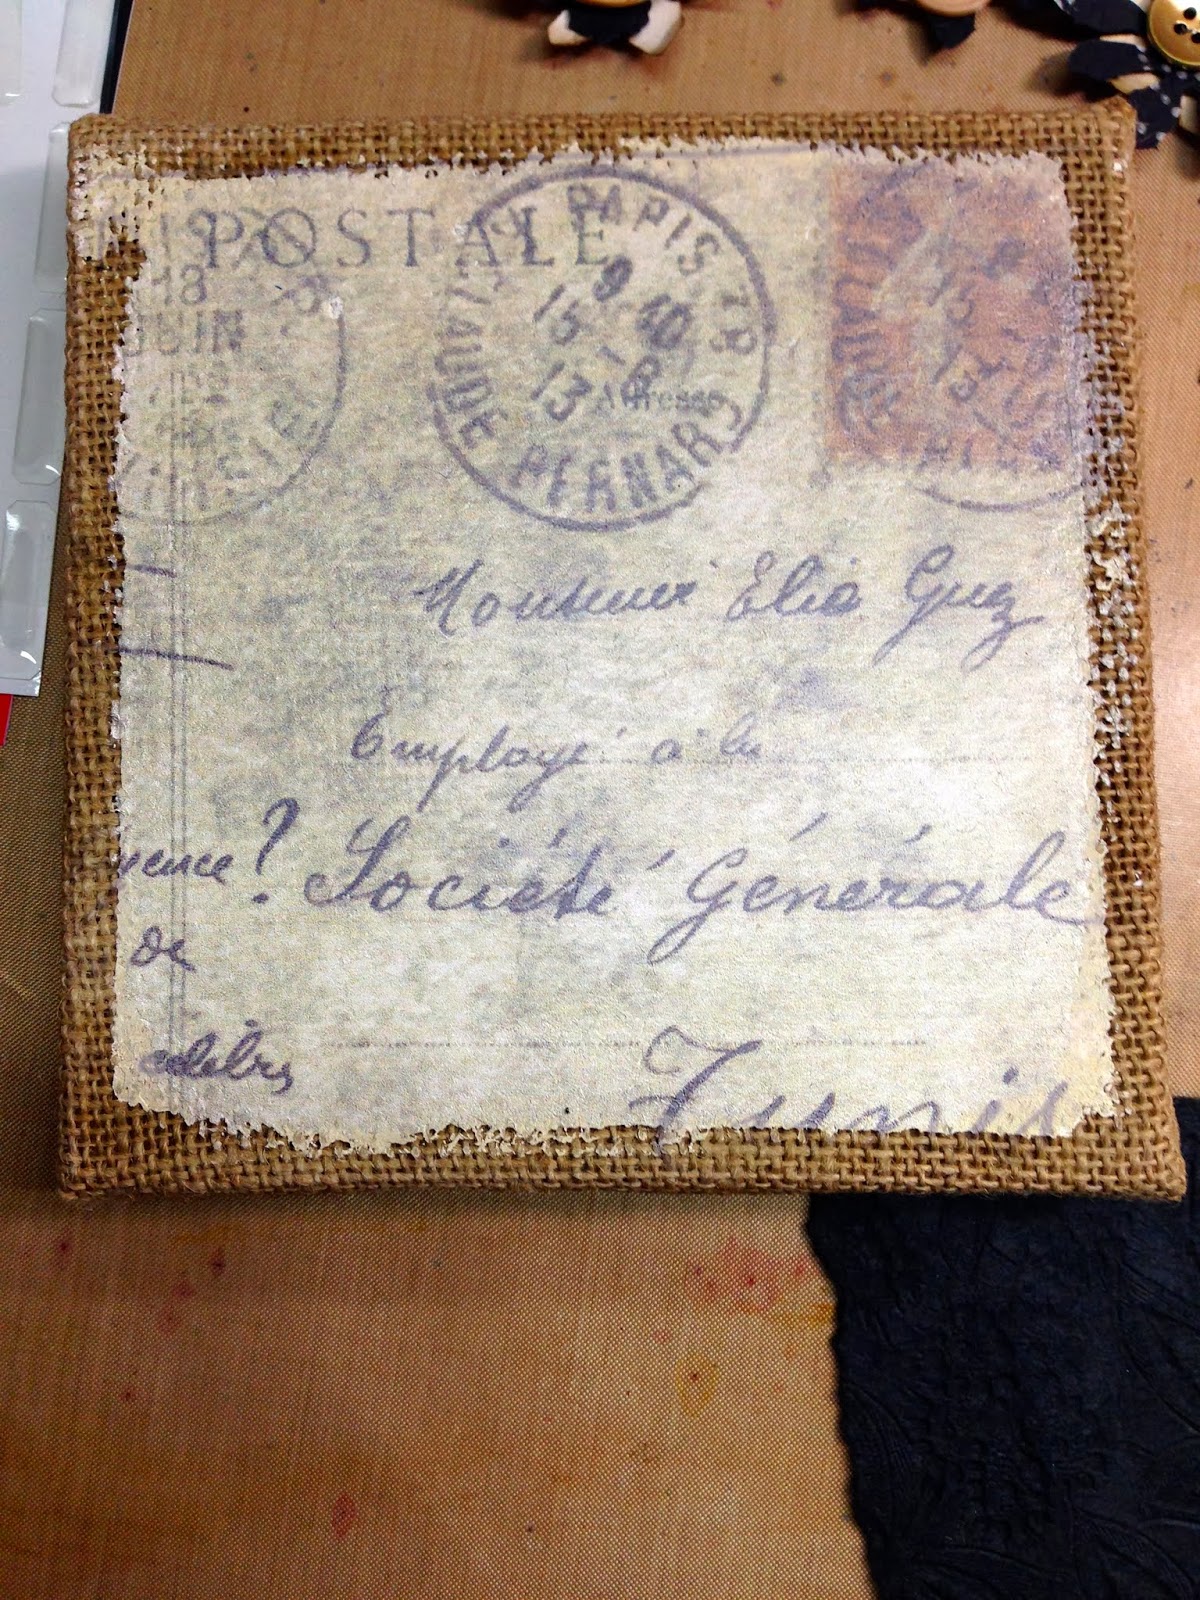 POSTALE
PARIS 18
9 10
15 - 6
13
CLAUDE BERNARD
Adresse
18
JUIN
15
13
Monsieur Elie Guez
Employé à la
? Société Générale
de
Tunis